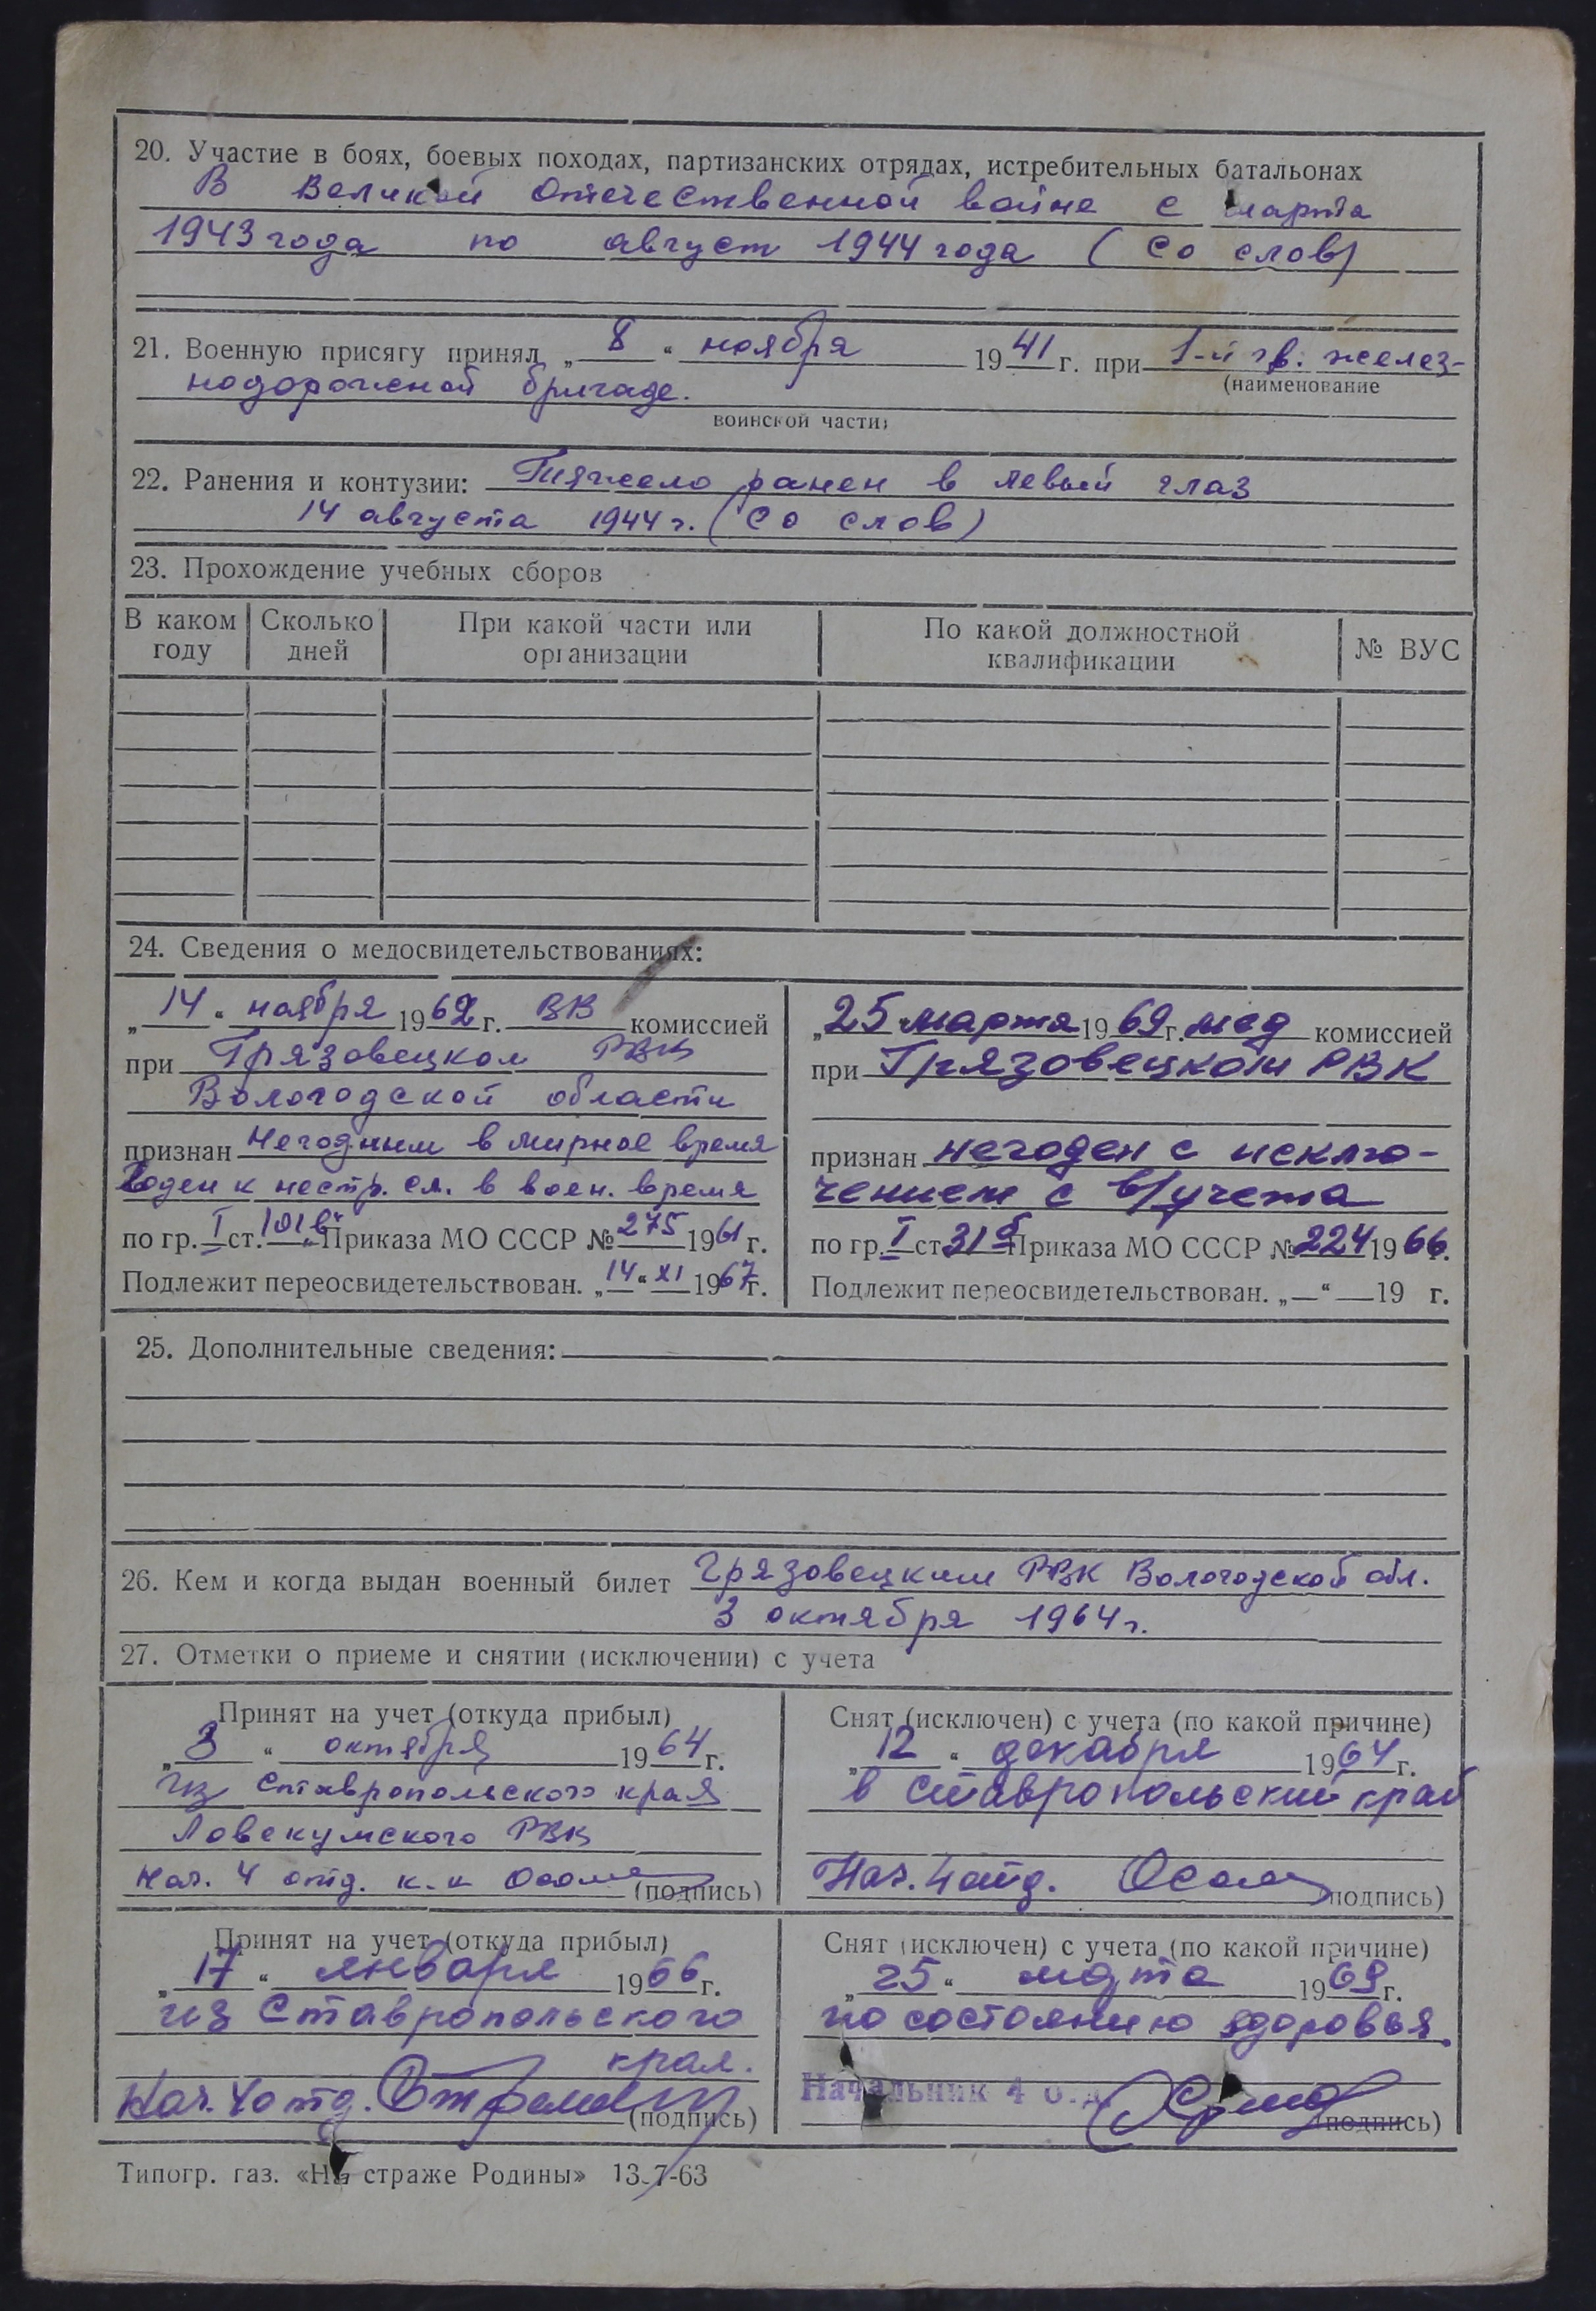 20. Участие в боях, боевых походах, партизанских отрядах, истребительных батальонах
В Великой Отечественной войне с марта
1943 года по август 1944 года (со слов)
21. Военную присягу принял „8“ ноября 1941 г. при 1-й гв. желез-
(наименование
нодорожной бригаде.
воинской части)
22. Ранения и контузии: Тяжело ранен в левый глаз
14 августа 1944 г. (со слов)
23. Прохождение учебных сборов
В каком году Сколько дней При какой части или организации По какой должностной квалификации № ВУС
24. Сведения о медосвидетельствованиях:
„14“ ноября 1962 г. ВВ комиссией
при Грязовецком РВК
Вологодской области
признан Негодным в мирное время
Годен к нестр. сл. в воен. время
по гр. I ст. 101 „в“ Приказа МО СССР № 275 1961 г.
Подлежит переосвидетельствован. „14“ XI 1967 г.
„25“ марта 1969 г. мед комиссией
при Грязовецком РВК
признан негоден с исклю-
чением с в/учета
по гр. I ст 31 б Приказа МО СССР № 224 1966 г.
Подлежит переосвидетельствован. „—“ —19 г.
25. Дополнительные сведения:
26. Кем и когда выдан военный билет Грязовецким РВК Вологодской обл.
3 октября 1964 г.
27. Отметки о приеме и снятии (исключении) с учета
Принят на учет (откуда прибыл)
„3“ октября 1964 г.
из Ставропольского края
Ловекумского РВК
Нач. 4 отд. к-н (подпись)
Снят (исключен) с учета (по какой причине)
„12“ декабря 1964 г.
в Ставропольский край
Нач. 4 отд. (подпись)
Принят на учет (откуда прибыл)
„17“ января 1966 г.
из Ставропольского
края.
Нач. 4 отд. (подпись)
Снят (исключен) с учета (по какой причине)
„25“ марта 1969 г.
по состоянию здоровья.
Начальник 4 о.д.
(подпись)
Типогр. газ. «На страже Родины» 13-7-63